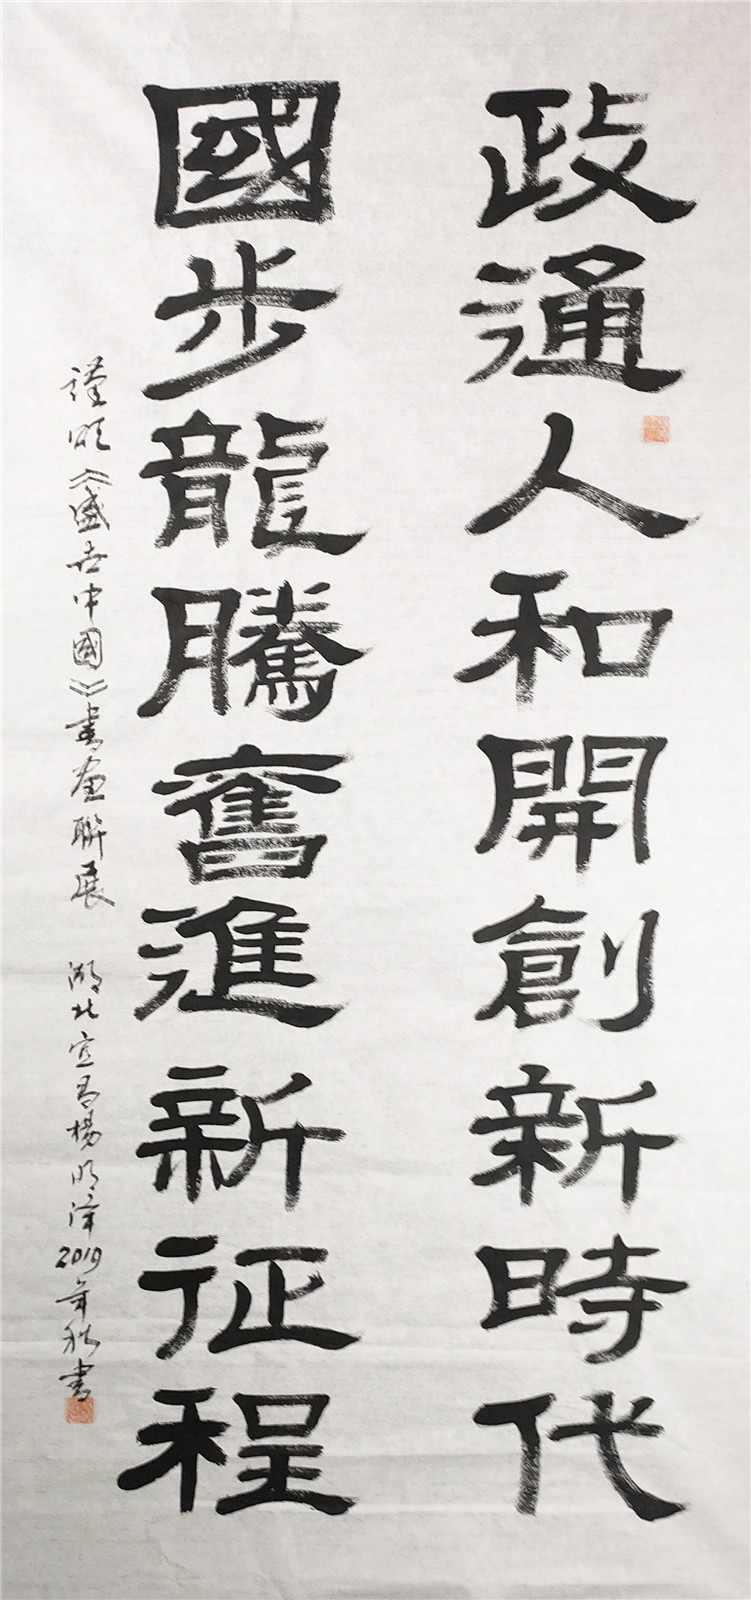 政通人和開創新時代
國步龍騰奮進新征程
謹頌《盛世中國》書画聯展 湖北宜昌楊明澤2019年秋書